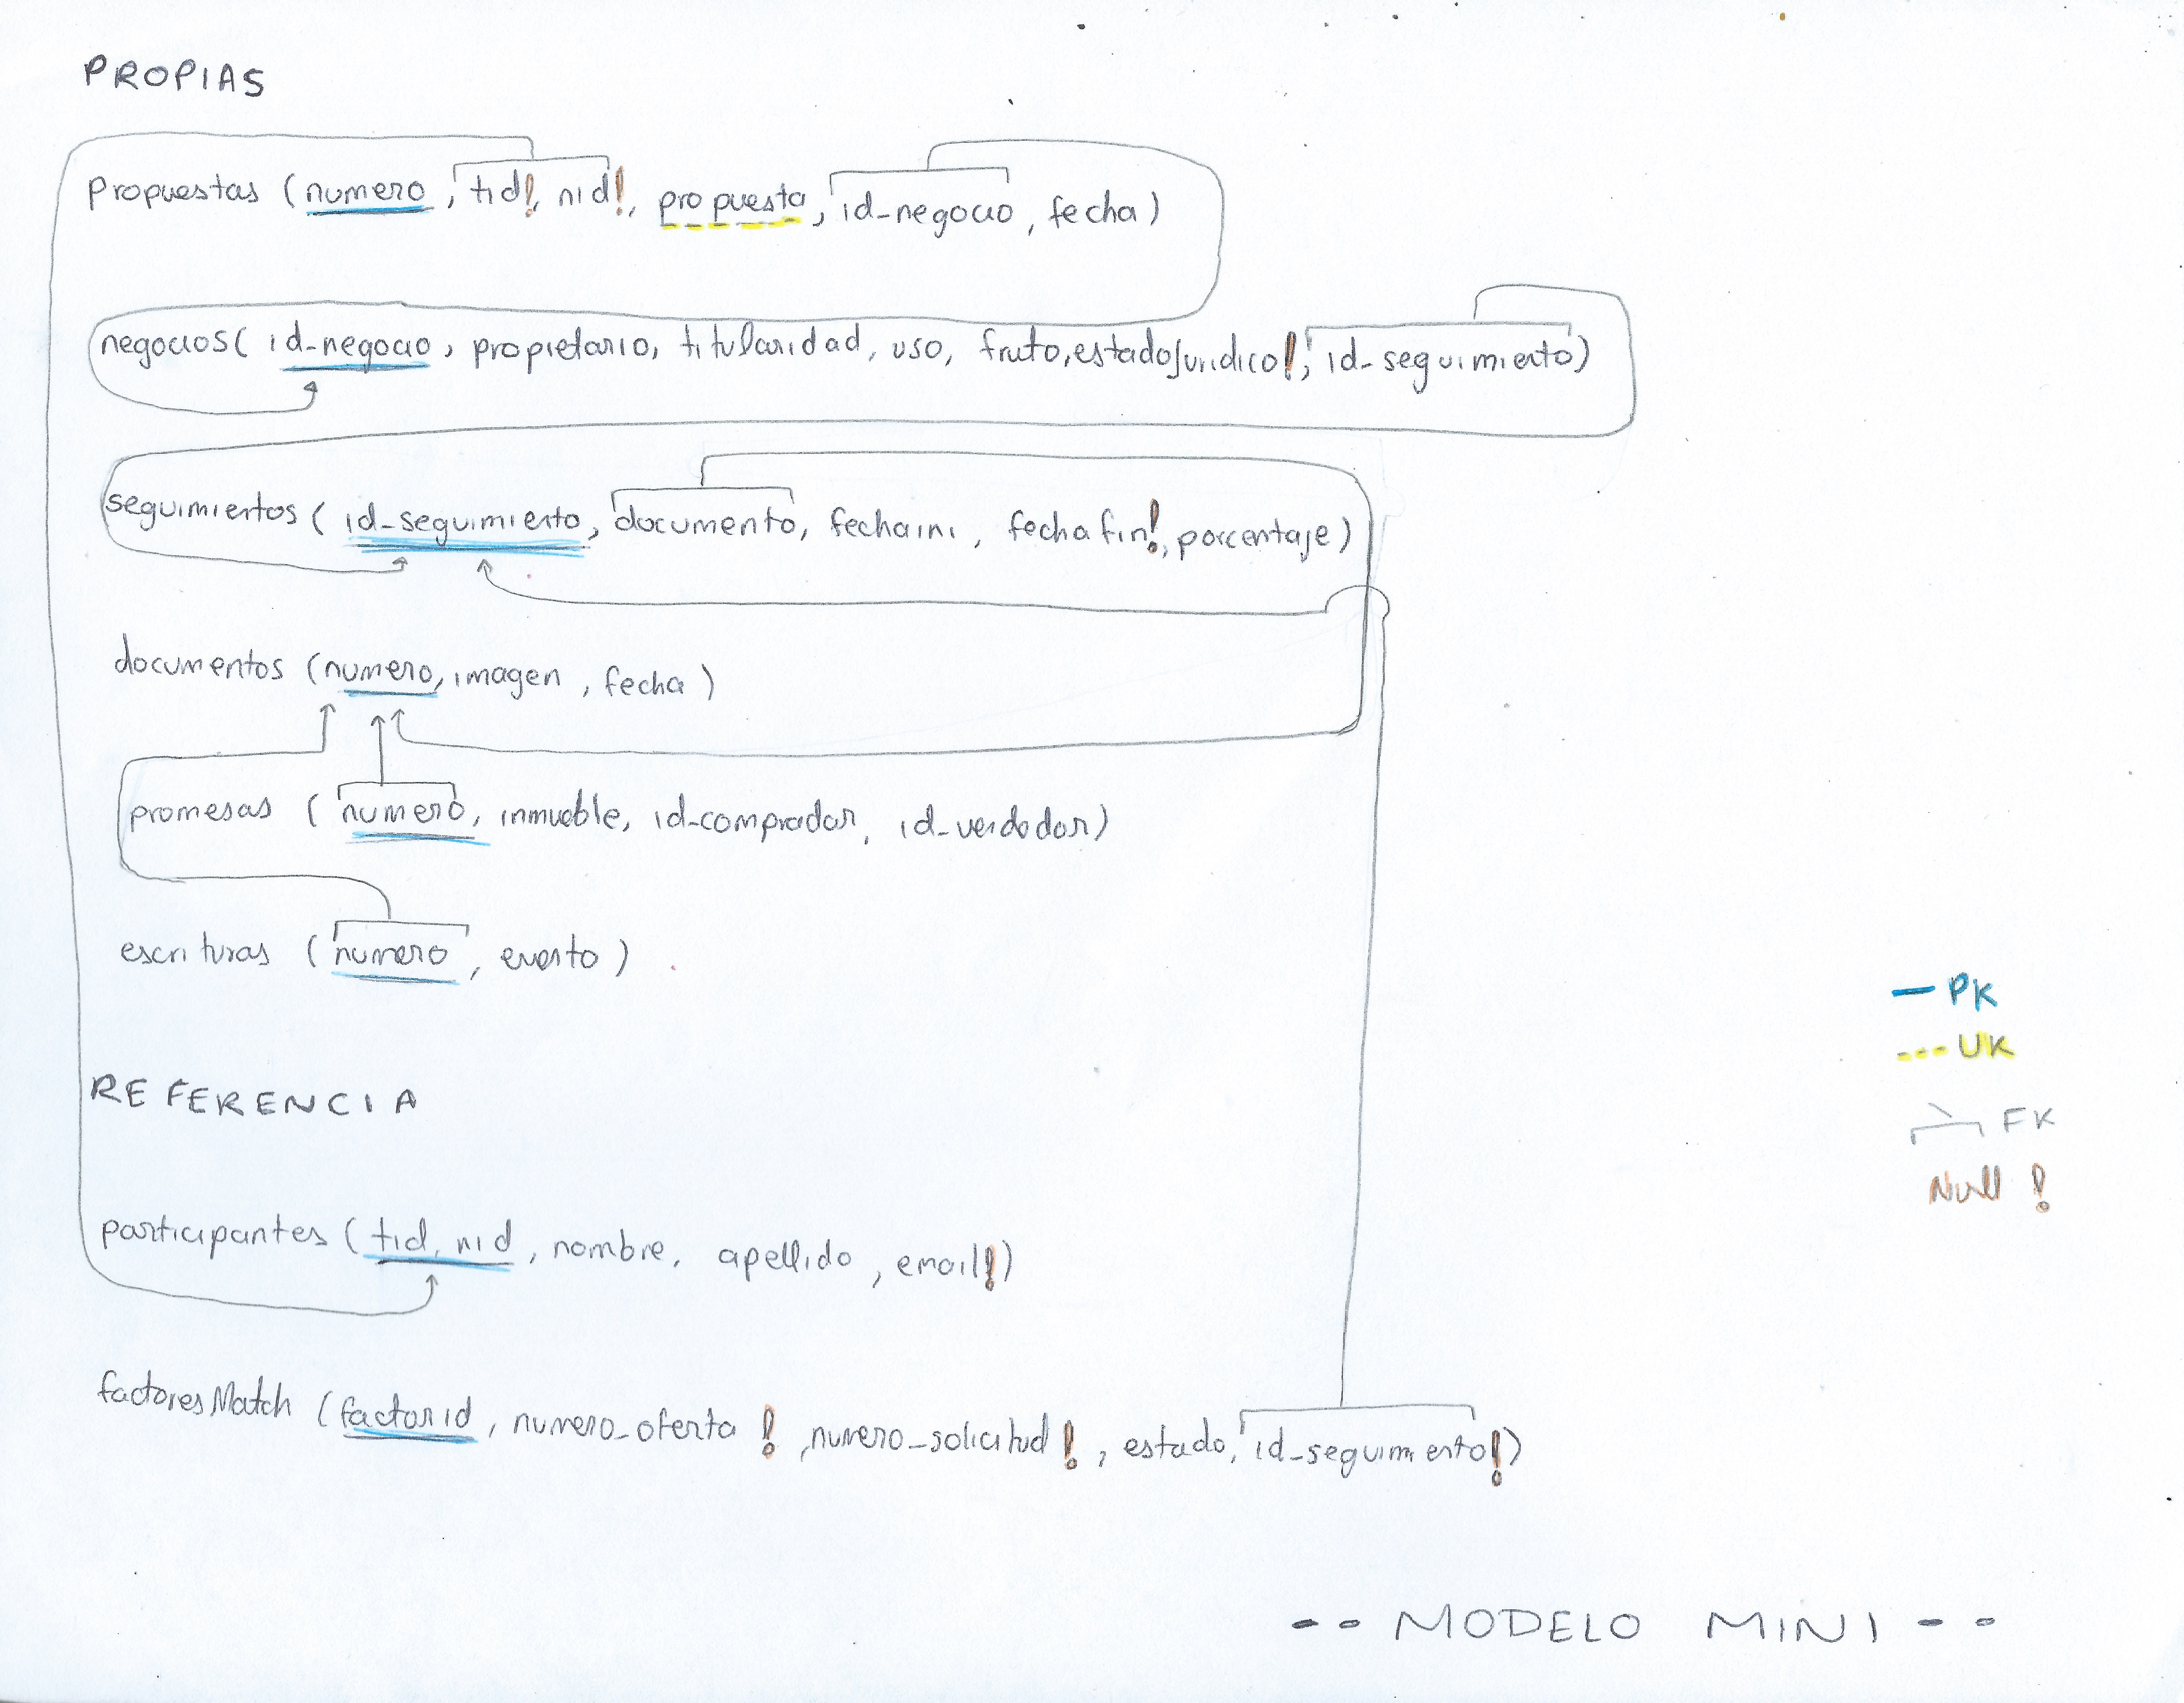 PROPIAS
Propuestas (numero, tid!, nid!, propuesta, id-negocio, fecha)
negocios( id-negocio, propietario, titularidad, uso, fruto, estadoJuridico!, id-seguimiento)
seguimientos ( id-seguimiento, documento, fechaini, fechafin!, porcentaje)
documentos (numero, imagen, fecha)
promesas ( numero, inmueble, id-comprador, id-vendedor)
escrituras ( numero, evento )
— PK
--- UK
FK
Null !
REFERENCIA
participantes ( tid, nid, nombre, apellido, email!)
factoresMatch (factorid, numero_oferta !, numero_solicitud!, estado, id-seguimiento!)
-- MODELO MINI --